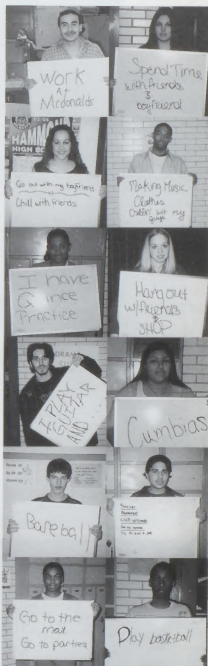 Work
At
Mcdonalds
Spend Time
with friends
&
boyfriend
HAMMOND
HIGH
Go out with my boyfriend
Chill with friends
Making Music
Clothes
Chillin wit my
I have
Quince
Practice
Hang out
w/friends
&
SHOP
I PLAY
GUITAR
AND
Cumbias
Baseball
Go to the
mall
Go to parties
Play basketball